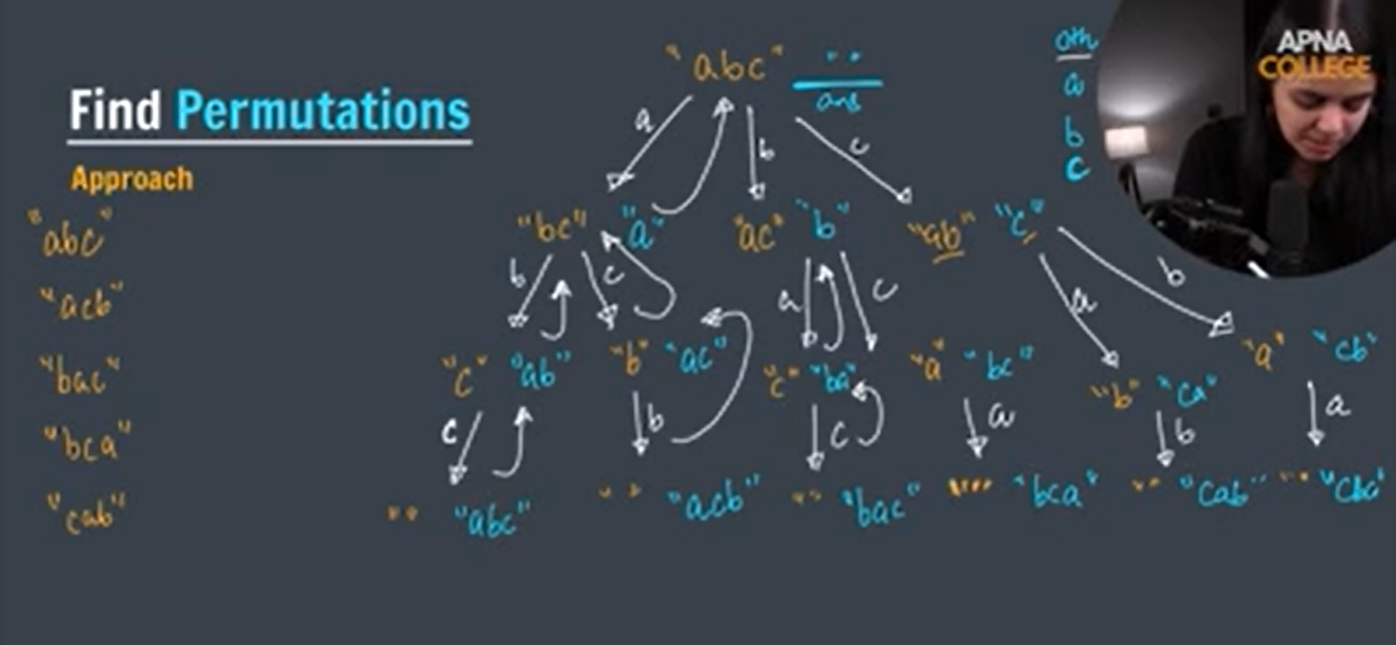 Find Permutations
Approach
"abc"
"acb"
"bac"
"bca"
"cab"
"abc" " "
ans
a b c
"bc" "a" "ac" "b" "ab" "c"
b c a c a b
"c" "ab" "b" "ac" "c" "ba" "a" "bc" "b" "ca" "a" "cb"
c b c a b a
" " "abc" " " "acb" " " "bac" " " "bca" " " "cab" " " "cba"
oth
a
b
c
APNA
COLLEGE